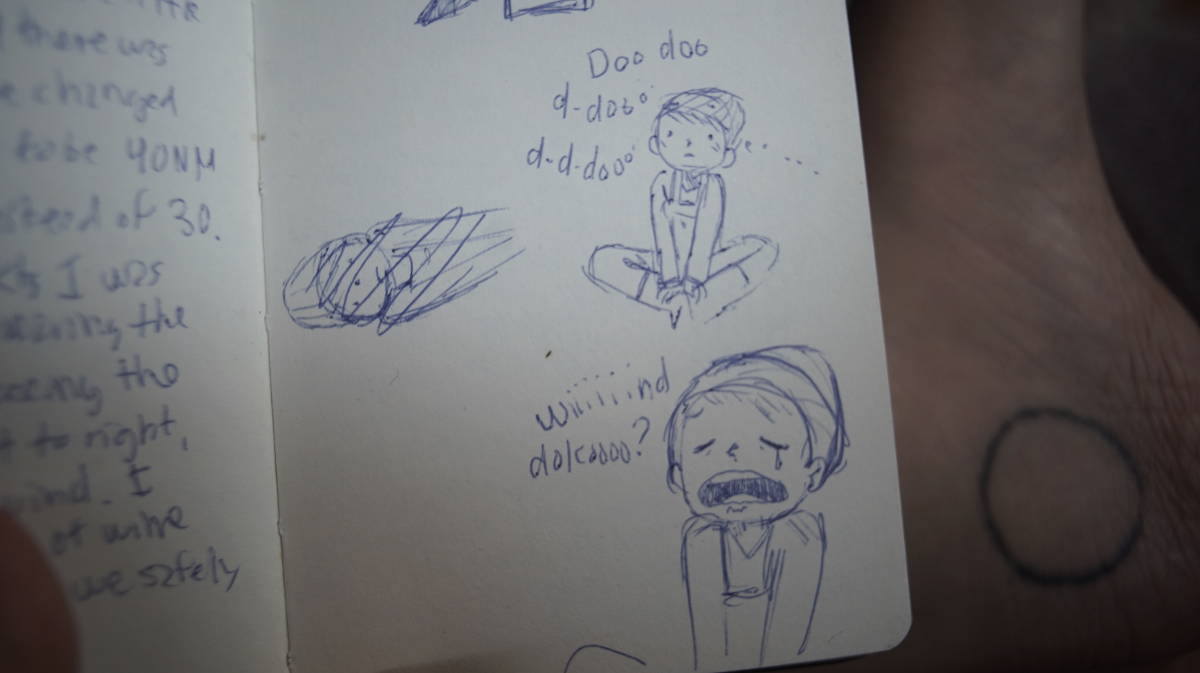 there was
changed
to be 40NM
of 30.
I was
the
the
to right,
wind. I
of wine
we safely
Doo doo
d-doo
d-d-doo
wiiiiiind
dolcoooo?